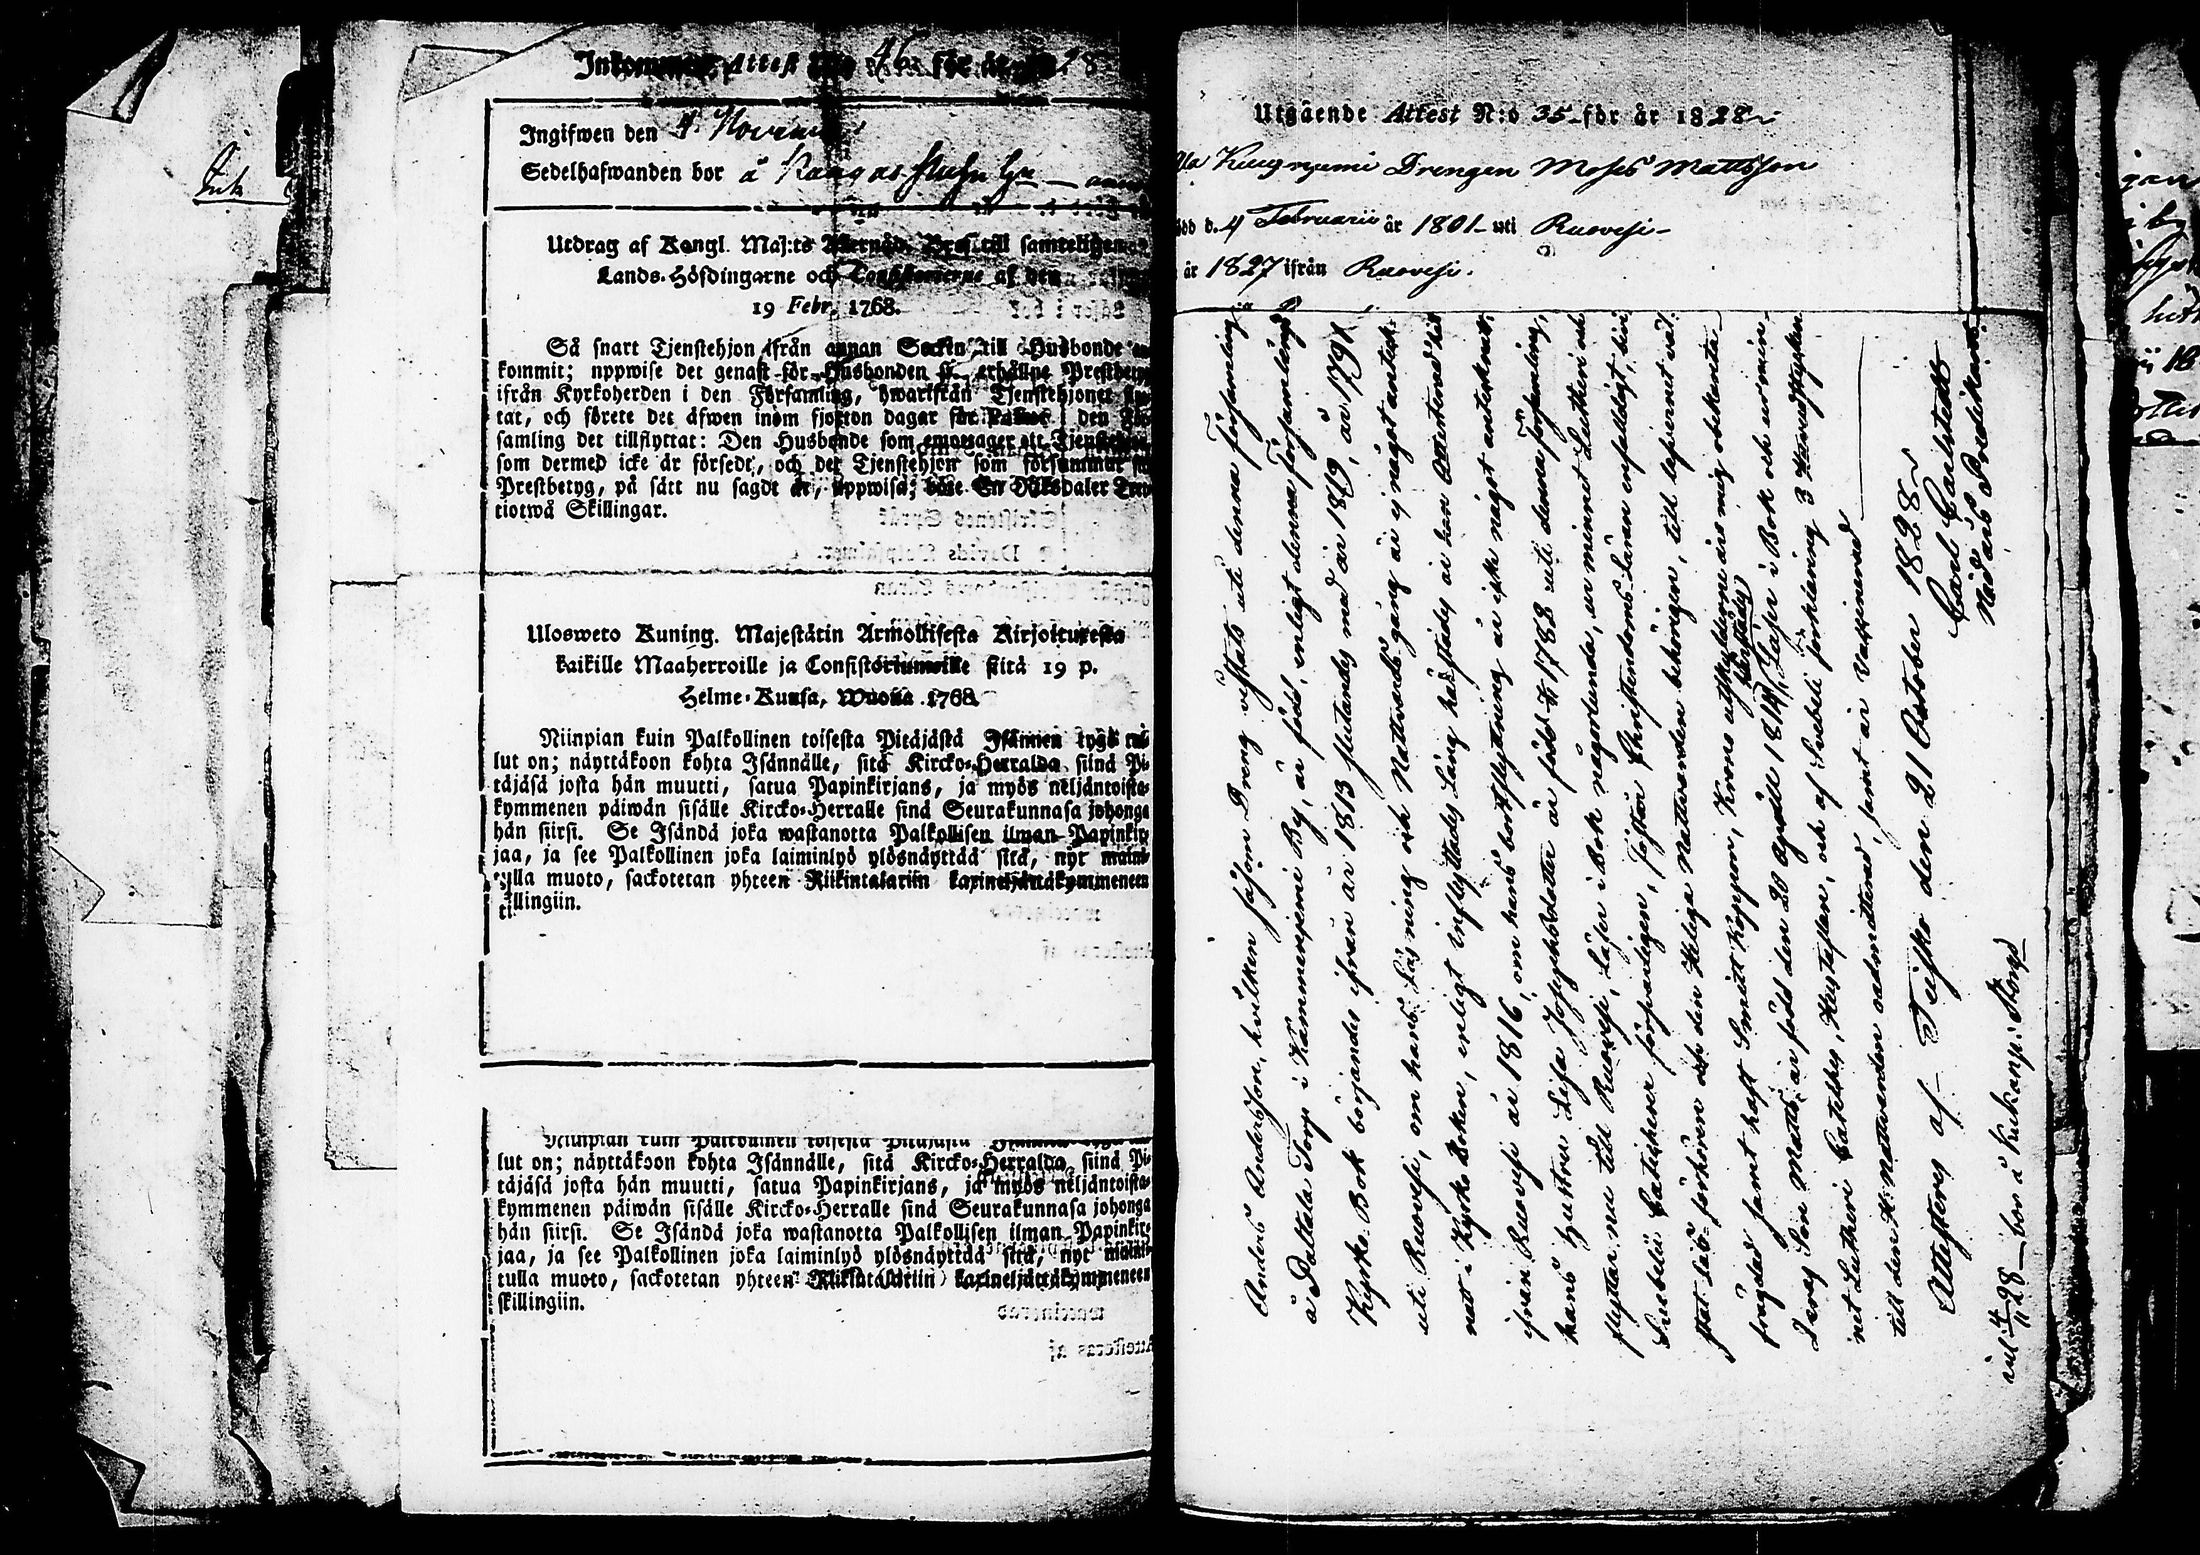 Attest 46 för år 28
Ingifwen den 4 Novem
Sedelhafwanden bor å
Utdrag af Kongl. Maj:ts Bref till samteligen
Lands-Höfdingarne och Consistorierne af den
19 Febr. 1768.
Så snart Tjenstehjon ifrån annan Socken till Husbonde
kommit; uppwise det genast för Husbonden erhållne Prestbetyg
ifrån Kyrkoherden i den Församling, hwarifrån Tjenstehjonet
tat, och förete det äfwen inom fjorton dagar för den
samling det tillflyttat: Den Husbonde som emottager ett
som dermed icke är försedt, och det Tjenstehjon som försummar
Prestbetyg, på sätt nu sagdt är, uppwisa; böte En Riksdaler
tiotwå Skillingar.
Ulosweto Kuning. Majestätin Armollisesta Kirjoituxesta
kaikille Maaherroille ja Consistoriumeille siitä 19 p.
Helme-Kuusa, Wuonna 1768.
Niinpian kuin Palkollinen toisesta Pitäjästä Isännän tygö tul-
lut on; näyttäköon kohta Isännälle, sitä Kircko-Herralda siinä Pi-
täjäsä josta hän muutti, satua Papinkirjans, ja myös neljäntoista-
kymmenen päiwän sisälle Kircko-Herralle sinä Seurakunnasa johonga
hän siirsi. Se Isändä joka wastanotta Palkollisen ilman Papinkir-
jaa, ja see Palkollinen joka laiminlyö ylösnäyttää sitä, nyt maini-
tulla muoto, sackotetan yhteen Riikintalariin kaxineljättäkymmeneen
illingiin.
Niinpian kuin Palkollinen toisesta Pitäjästä
lut on; näyttäkoon kohta Isännälle, sitä Kircko-Herralda siinä Pi-
täjäsä josta hän muutti, satua Papinkirjans, ja myös neljäntoista-
kymmenen päiwän sisälle Kircko-Herralle sinä Seurakunnasa johonga
hän siirsi. Se Isändä joka wastanotta Palkollisen ilman Papinkir-
jaa, ja see Palkollinen joka laiminlyö ylösnäyttää sitä, nyt maini-
tulla muoto, sackotetan yhteen Riikintalariin kaxineljättäkymmeneen
skillingiin.
Utgående Attest N:o 35 för år 1828
Drengen Moses Mattsson
född d. 4 Februarii år 1801 uti Ruovesi
år 1827 ifrån Ruovesi.
Anders Andersson, hvilken såsom Dreng vistats uti denna Församling
å Pallala Torp i Kammenjemi By, är född, enligt denna Församlings
Kyrko-Bok börjandes ifrån år 1813 slutandes med år 1819, år 1791
uti Ruovesi, om hans Läsning och Nattvards gång är ej något anteck-
nat i Kyrko Boken, enligt Inflyttnings Läng härstädes är han Attesterad hit
ifrån Ruovesi år 1816, om hans bortflyttning är icke något antecknat;
hans Hustru Lisa Josephsdotter är född 1788 uti denna Församling,
flyttar nu till Ruovesi, Läser i Bok någorlunda, ur minnet Lutheri och
Svebelii Catecheser försvarligen, fattar Christendoms Läran enfaldigt, bivi-
stat Läs-förhören och den Heliga Nattvarden behörigen, till lefvernet oad.
fragdad samt haft Smitt Koppom, Krono utskylderne äro mig obekanta.
Deras Son Matts är född den 20 Aprill 1814 härstädes, Läser i Bok och ur min-
net Lutheri Catechs, Hustaflan, och af Svebeli förklaring 3 Hufvudstycken
till den H: Nattvarden oadmitterad, samt är Vaccinerad
Attesteras af Teisko den 21 October 1828
Carl Carlstedt
Nådårs Predikant.
bor å